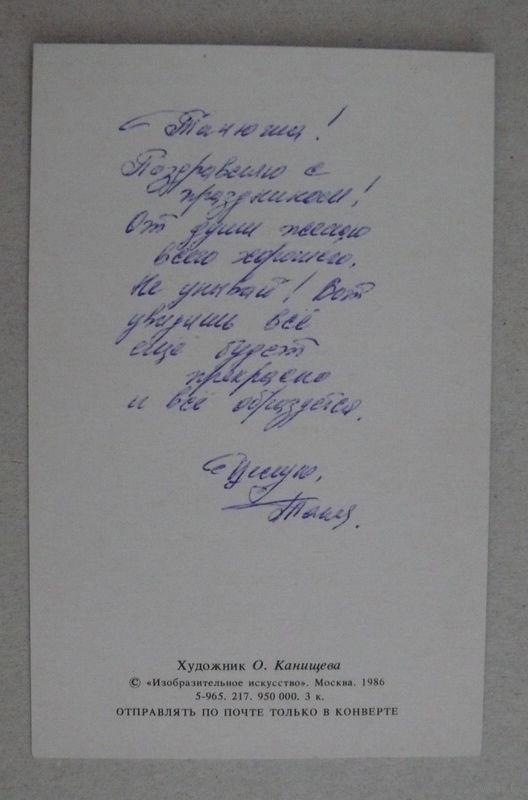 Танюша!
Поздравляю с
праздником!
От души желаю
всего хорошего.
Не унывай! Вот
увидишь всё
ещё будет
прекрасно
и всё образуется.
Целую,
Таня.
Художник О. Канищева
© «Изобразительное искусство». Москва. 1986
5-965. 217. 950 000. 3 к.
ОТПРАВЛЯТЬ ПО ПОЧТЕ ТОЛЬКО В КОНВЕРТЕ